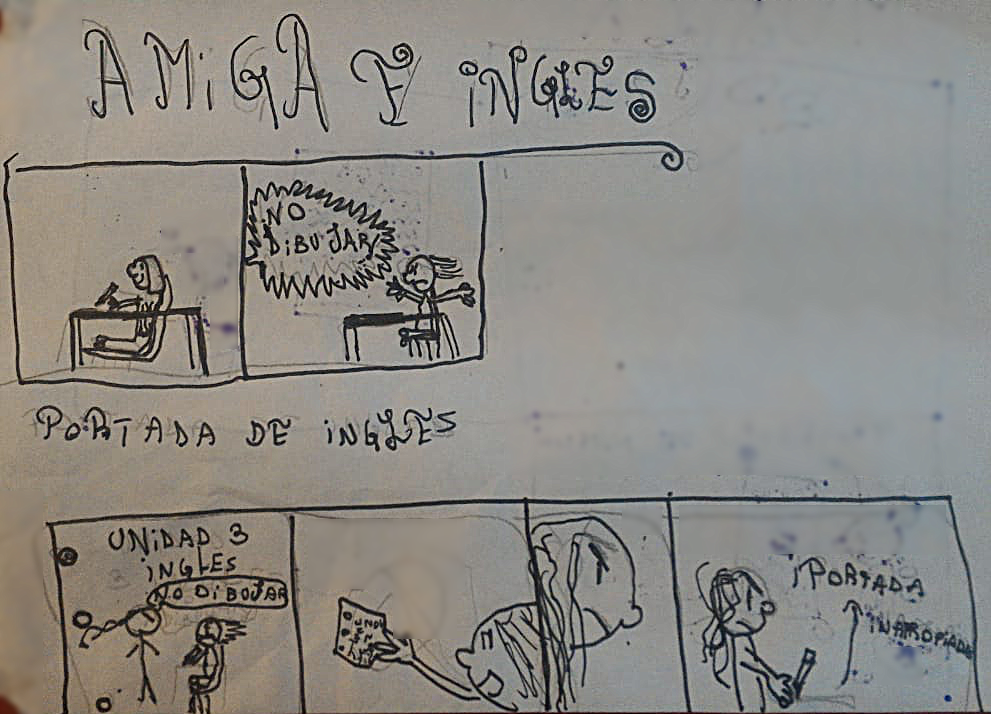 AMiGA Y iNGLES
¡NO
DiBUJAR!
PORTADA DE iNGLES
UNiDAD 3
iNGLES
NO DiBUJAR
¡PORTADA